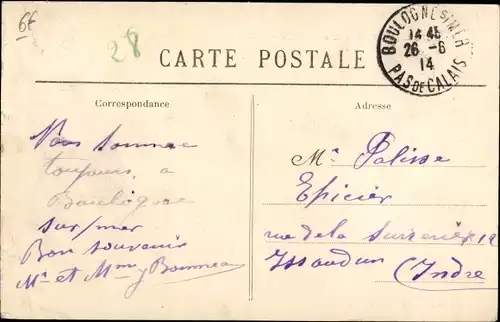 6f
28
CARTE POSTALE
BOULOGNE S/MER
14 45
26 -6
14
PAS DE CALAIS
Correspondance
Adresse
Nous sommes
toujours a
Boulogne
sur/mer
Bon souvenir
Mr et Mme Bonneau
Mr Palisse
Epicier
rue de la
Issoudun (Indre